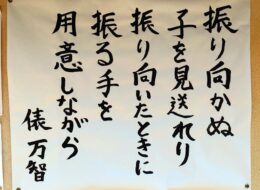 振り向かぬ
子を見送れり
振り向いたときに
振る手を
用意しながら
俵 万智